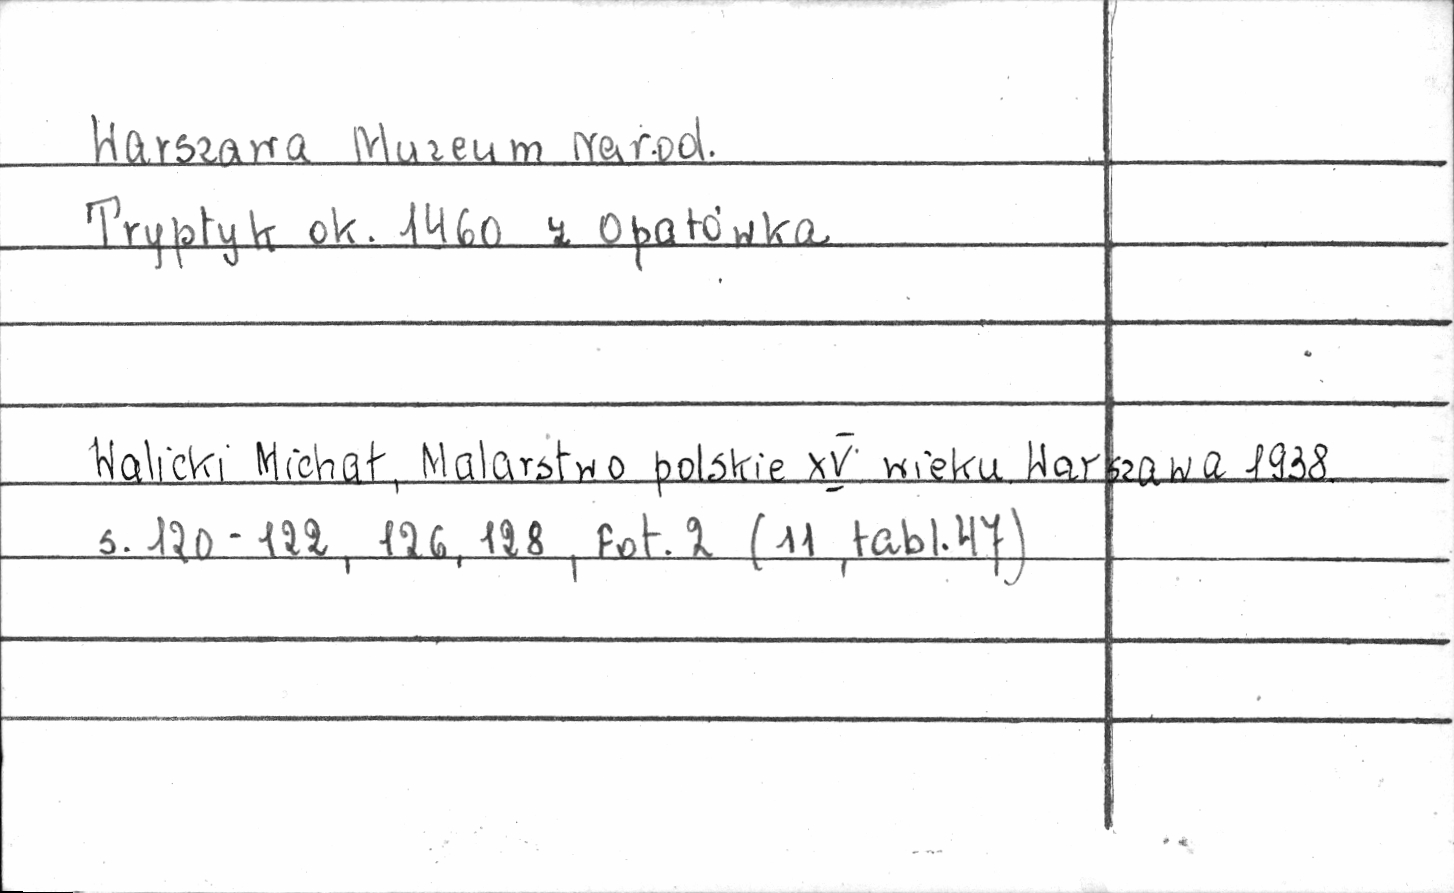 Warszawa Muzeum Narod.
Tryptyk ok. 1460 z Opatówka
Walicki Michał, Malarstwo polskie XV wieku Warszawa 1938.
s. 120-122, 126, 128, Fot. 2 (11, tabl. 47)